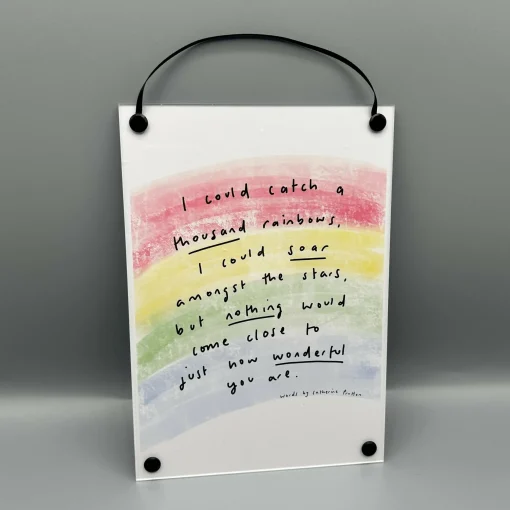 I could catch a
thousand rainbows,
I could soar
amongst the stars,
but nothing would
come close to
just how wonderful
you are.
words by Catherine Prutton